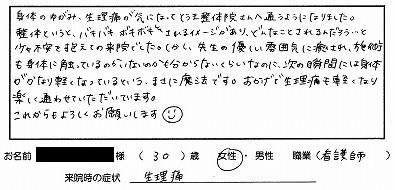 身体のゆがみ、生理痛が気になってうさ整体院さんへ通うようになりました。
整体というと、バキバキ ボキボキとされるイメージがあり、どんなことされるんだろう…と
少々不安でむかえての来院でした。しかし、先生の優しい雰囲気に癒され、施術
も身体に触っているのかいないのか分からないくらいなのに、次の瞬間には身体
がかなり軽くなっているという、まさに魔法です。おかげで生理痛も軽くなり
楽しく通わせていただいています。
これからもよろしくお願いします
お名前 様 (30)歳 女性・男性 職業(看護師)
来院時の症状 生理痛